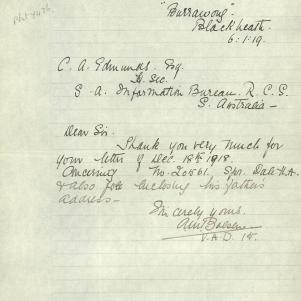 "Burrawong"
Blackheath.
6.1.19.
C. A. Edmunds. Esq.
H. Sec.
S. A. Information Bureau. R. C. S.
S. Australia—
Dear Sir.
Thank you very much for
your letter of Dec 18th 1918.
Concerning No. 20561. Spr. Dale H.A.
& also for enclosing his father's
address—
Sincerely yours.
V. A. D.